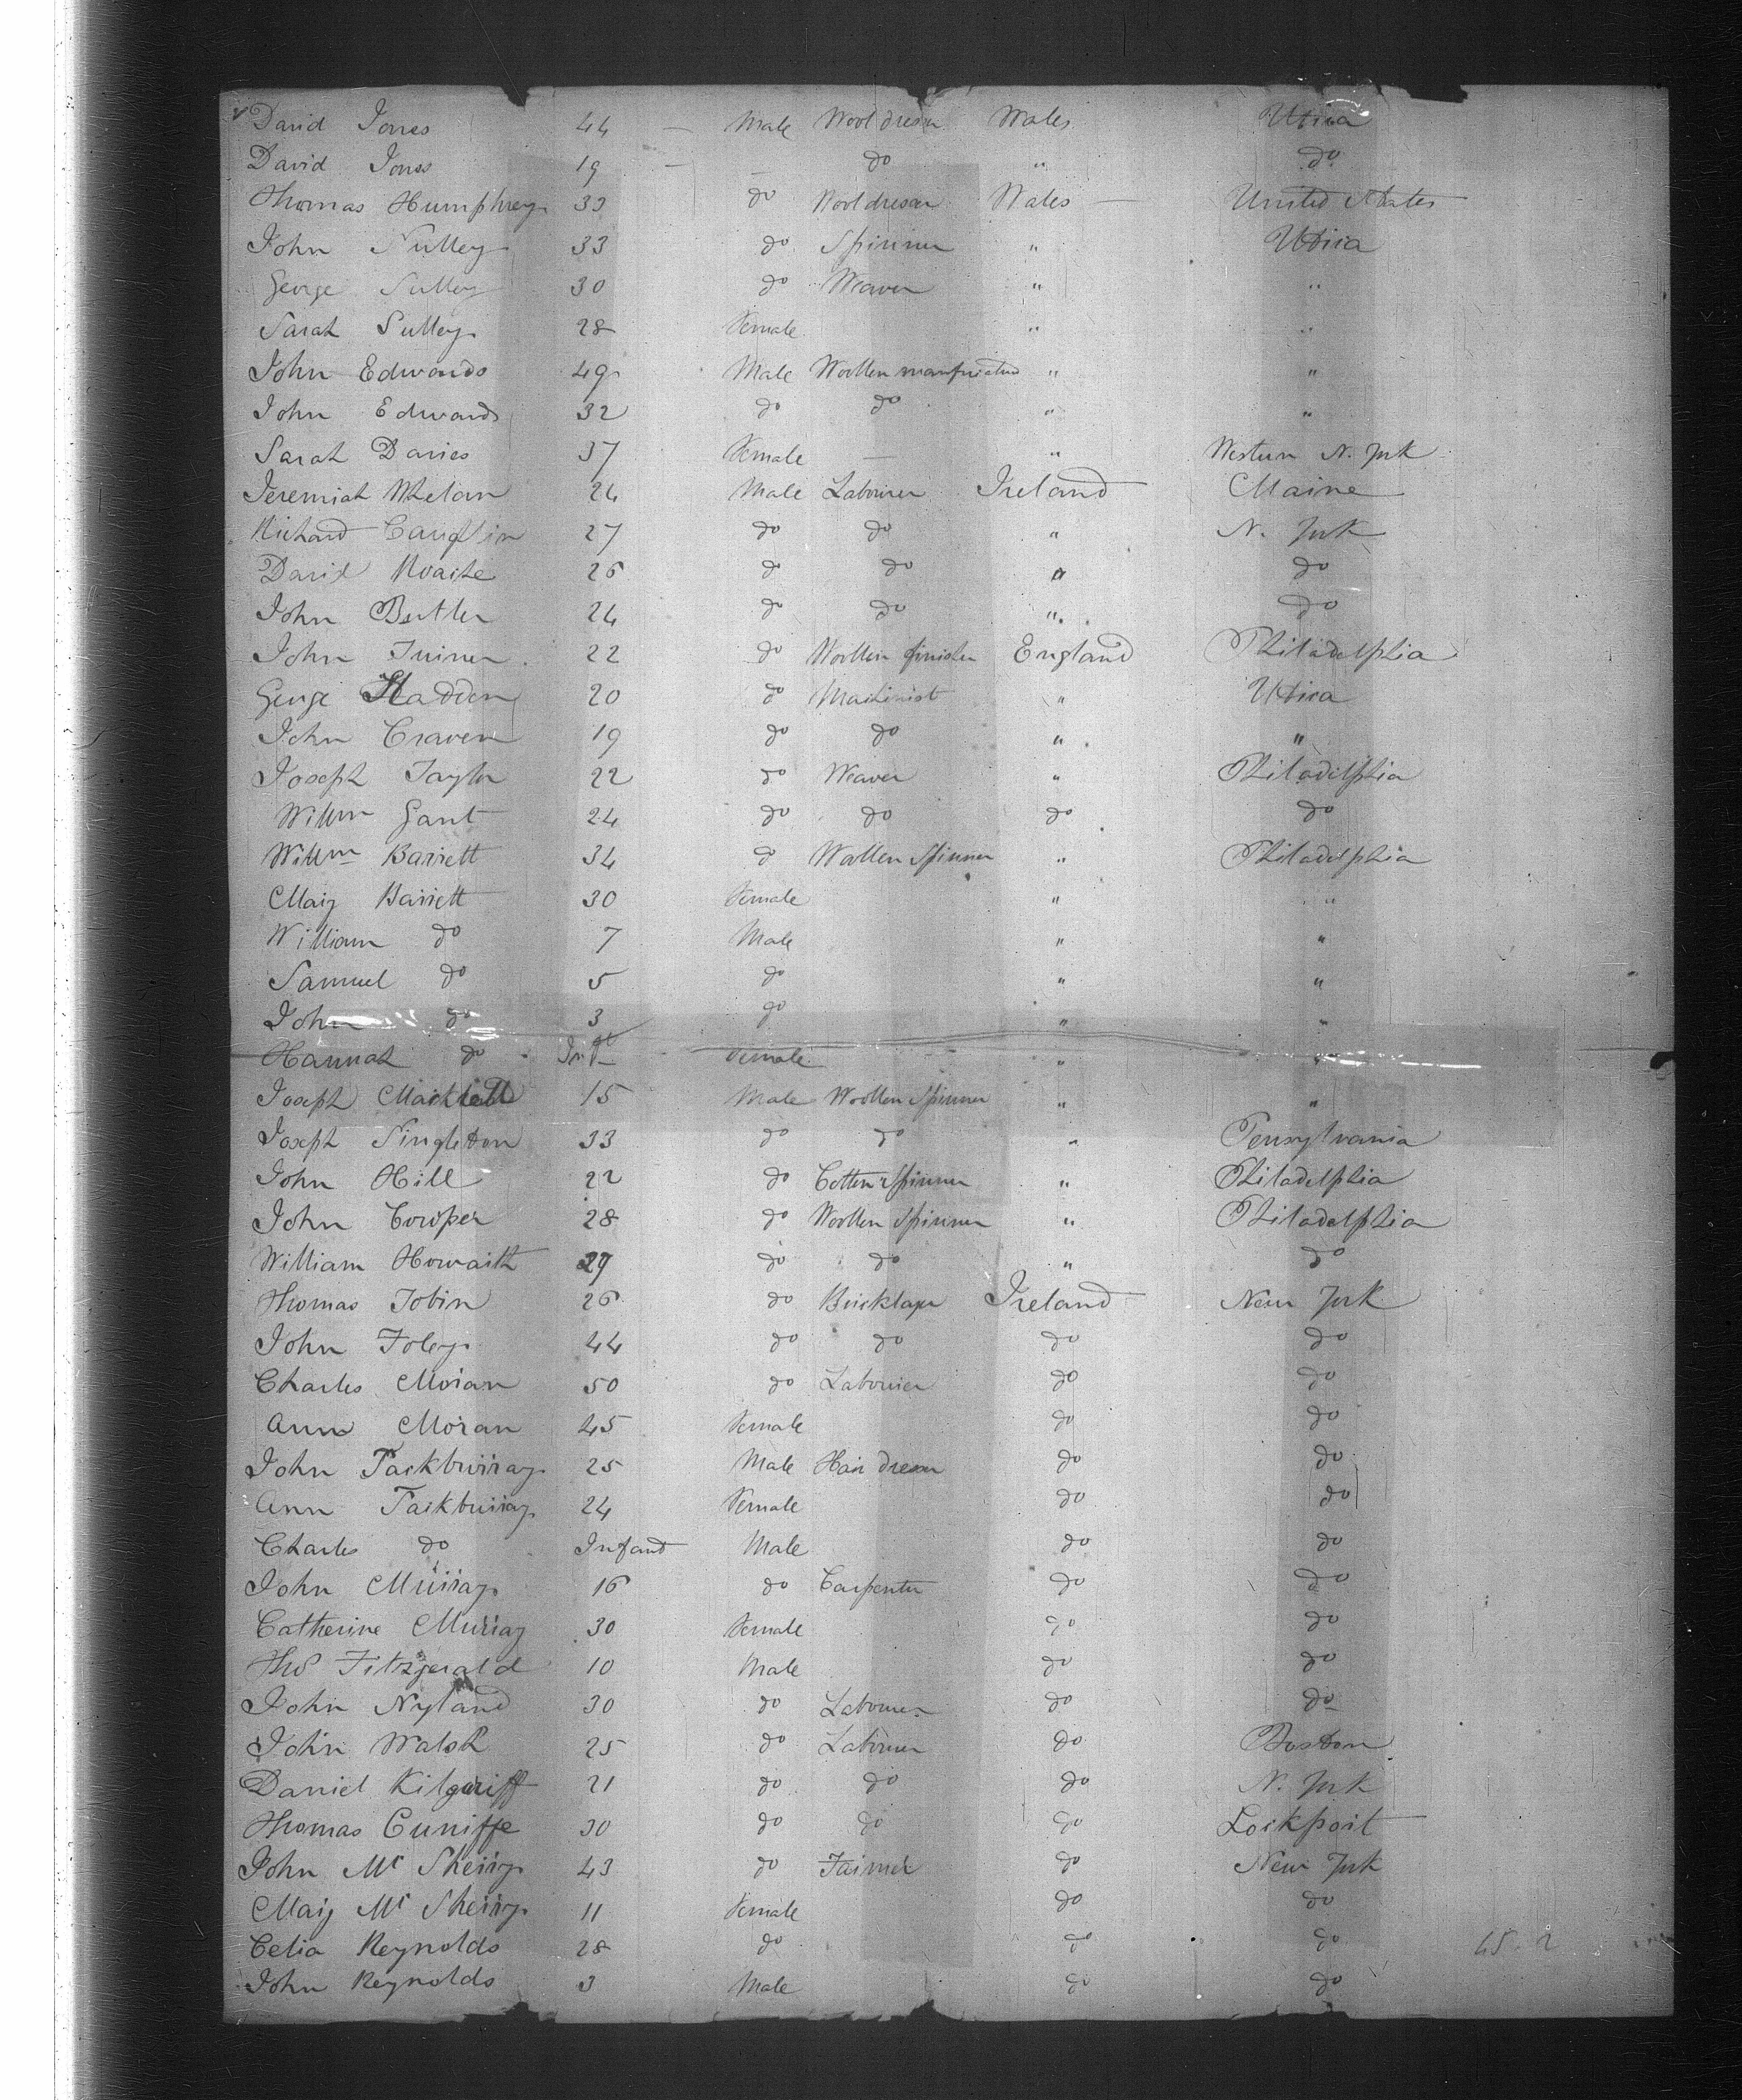 David Jones 44 — Male Wool dresser Wales Utica
David Jones 19 — — do " do
Thomas Humphreys 33 do Wool dresser Wales — United States
John Sulley 33 do Spinner " Utica
George Sulley 30 do Weaver " "
Sarah Sulley 28 Female " "
John Edwards 49 Male Woollen manufacturer " "
John Edwards 32 do do " "
Sarah Davies 37 Female — " Western N. York
Jeremiah Whelan 24 Male Labourer Ireland Maine
Richard Caughlin 27 do do " N. York
David Roache 26 do do " do
John Butler 24 do do " do
John Turner 22 do Woollen finisher England Philadelphia
George Hadden 20 do Machinist " Utica
John Craven 19 do do " "
Joseph Taylor 22 do Weaver " Philadelphia
Willm Gant 24 do do do do
Willm Barrett 34 do Woollen Spinner " Philadelphia
Mary Barrett 30 Female " "
William do 7 Male " "
Samuel do 5 do " "
John do 3 do " "
Hannah do Inft Female " "
Joseph 15 Male Woollen Spinner " "
Joseph Singleton 33 do do " Pensylvania
John Hill 22 do Cotton Spinner " Philadelphia
John Cowper 28 do Woollen Spinner " Philadelphia
William Howarth 29 do do " do
Thomas Tobin 26 do Bricklayer Ireland New York
John Foley 44 do do do do
Charles Moran 50 do Labourer do do
Ann Moran 45 Female do do
John Tackburray 25 Male Hair dresser do do
Ann Tackburray 24 Female do do
Charles do Infant Male do do
John Murray 16 do Carpenter do do
Catherine Murray 30 Female do do
Thos Fitzgerald 10 Male do do
John Nyland 30 do Labourer do do
John Walsh 25 do Labourer do Boston
Daniel Kilgariff 21 do do do N. York
Thomas Cuniffe 30 do do do Lockport
John Mc Sherry 43 do Farmer do New York
Mary Mc Sherry 11 Female do do
Celia Reynolds 28 do do do
John Reynolds 3 Male do do